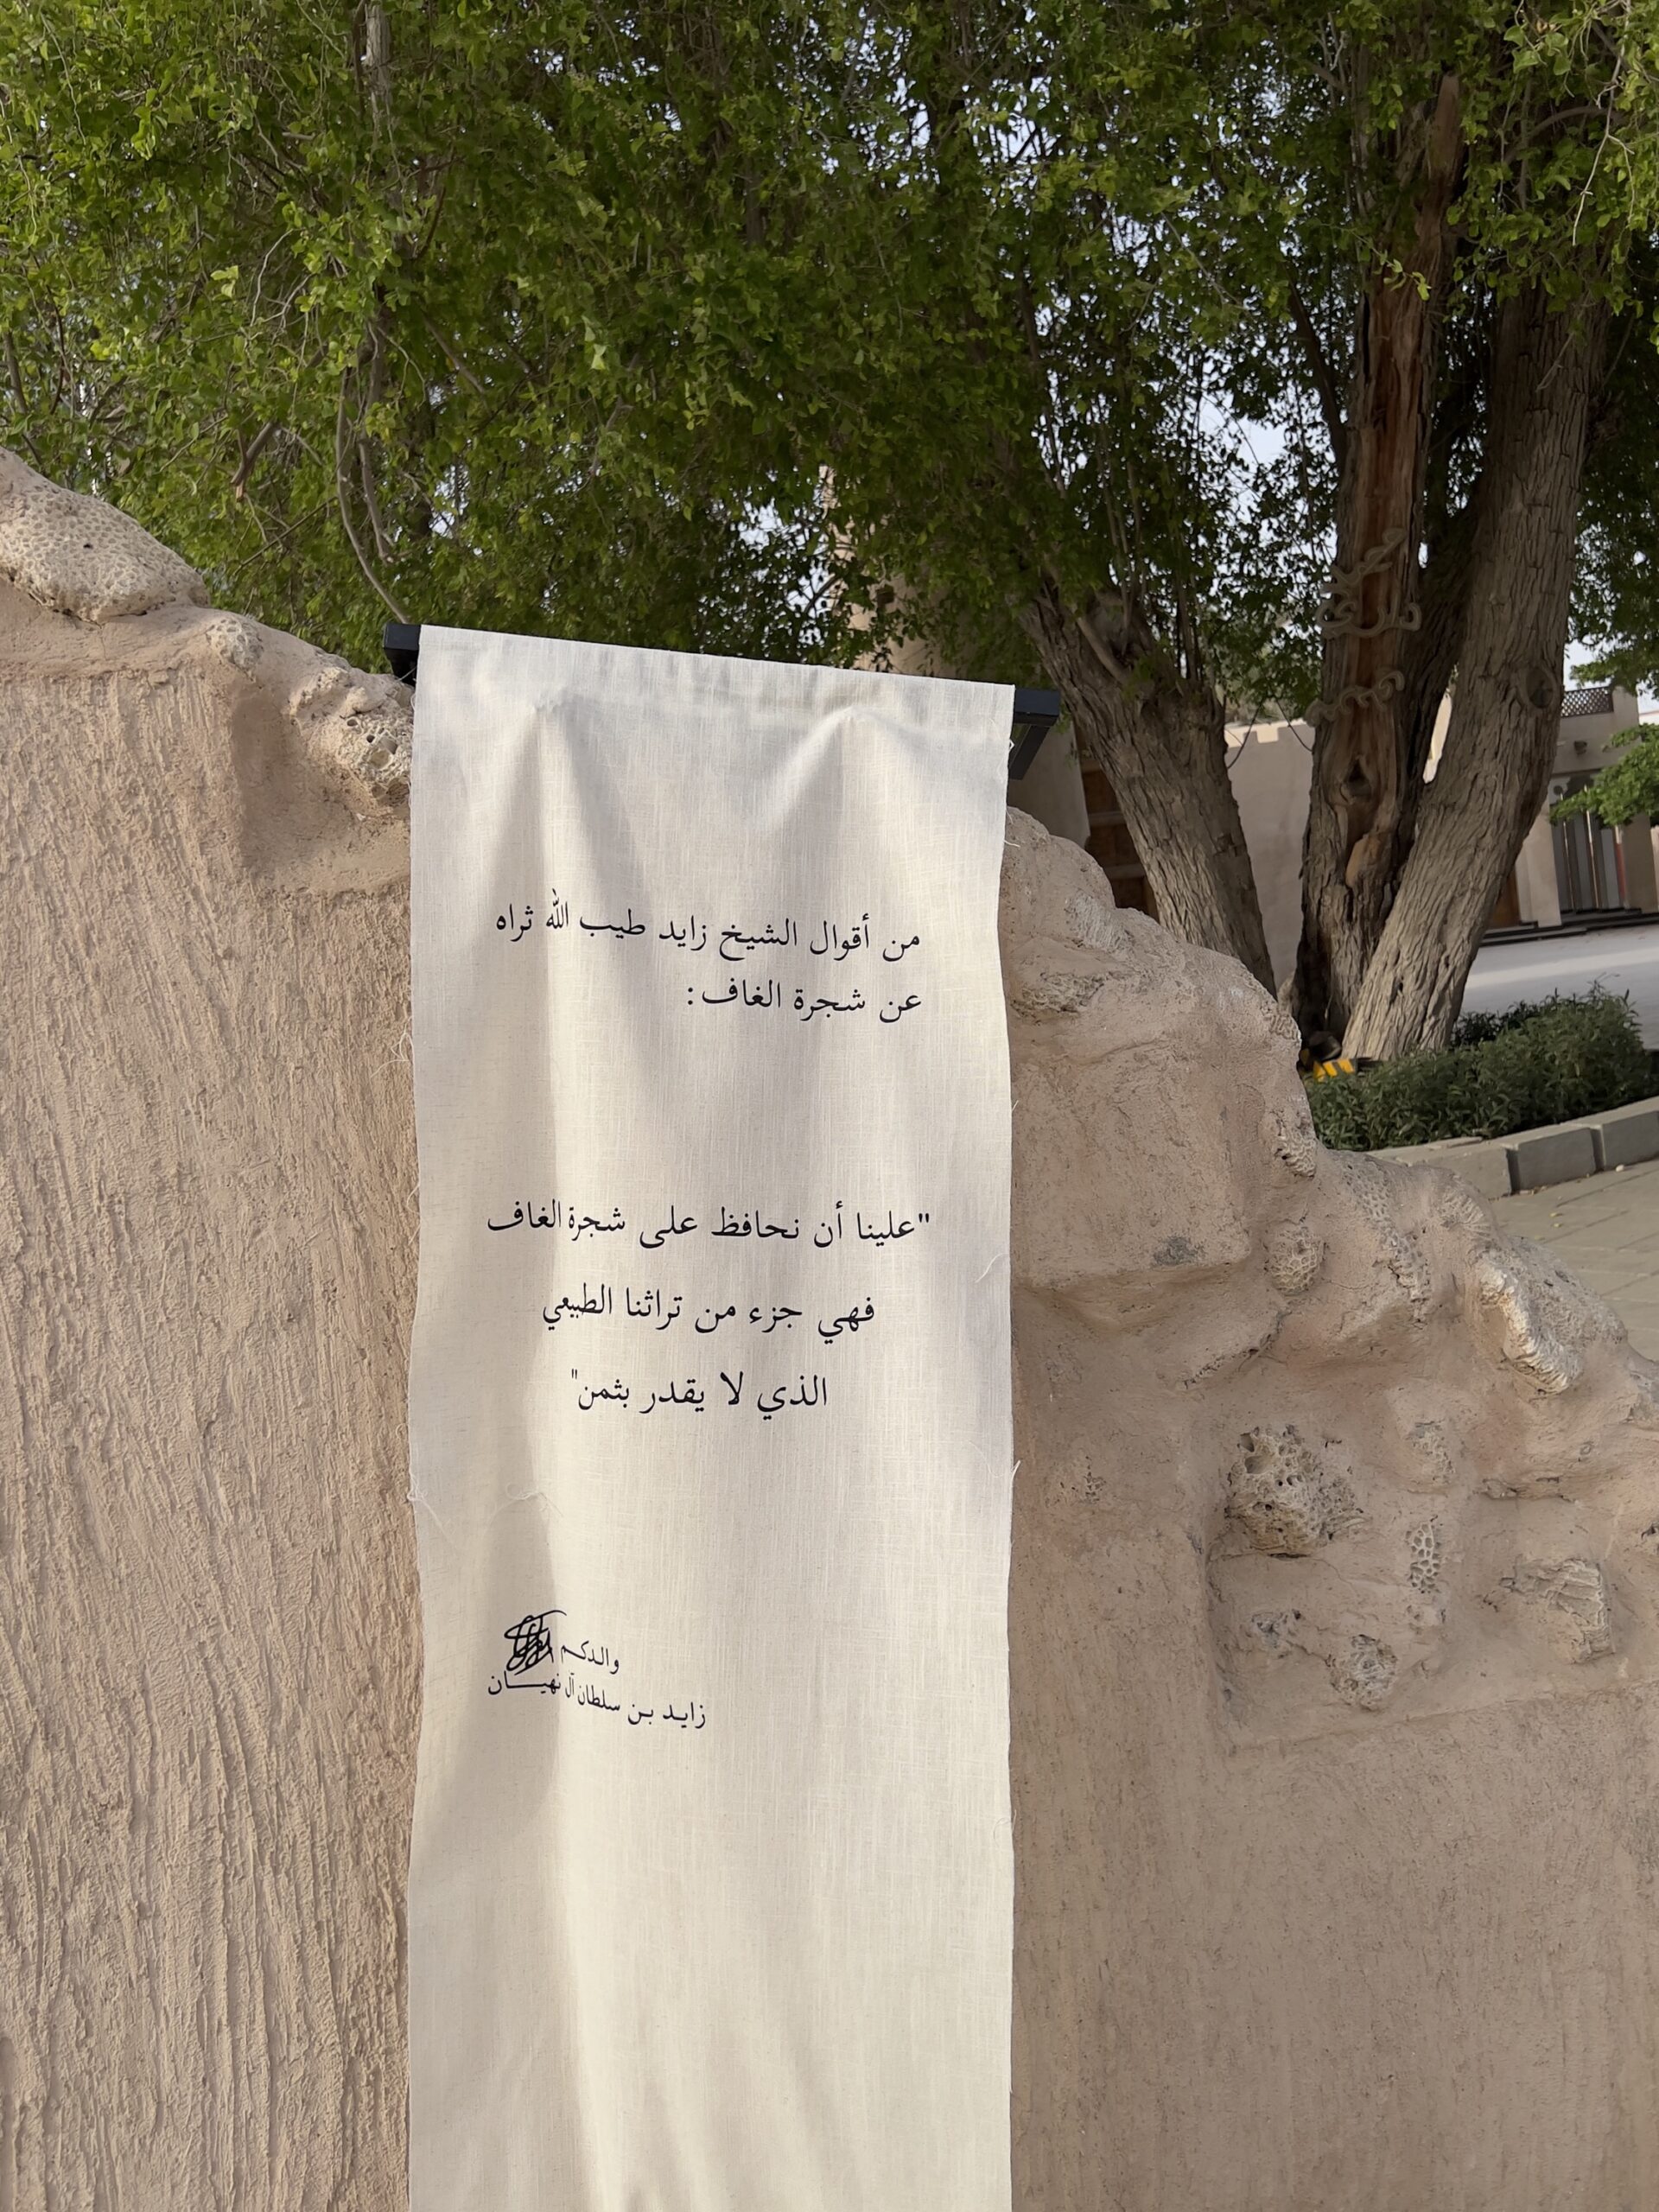 من أقوال الشيخ زايد طيب الله ثراه
عن شجرة الغاف:
"علينا أن نحافظ على شجرة الغاف
فهي جزء من تراثنا الطبيعي
الذي لا يقدر بثمن"
والدكم
زايد بن سلطان آل نهيان